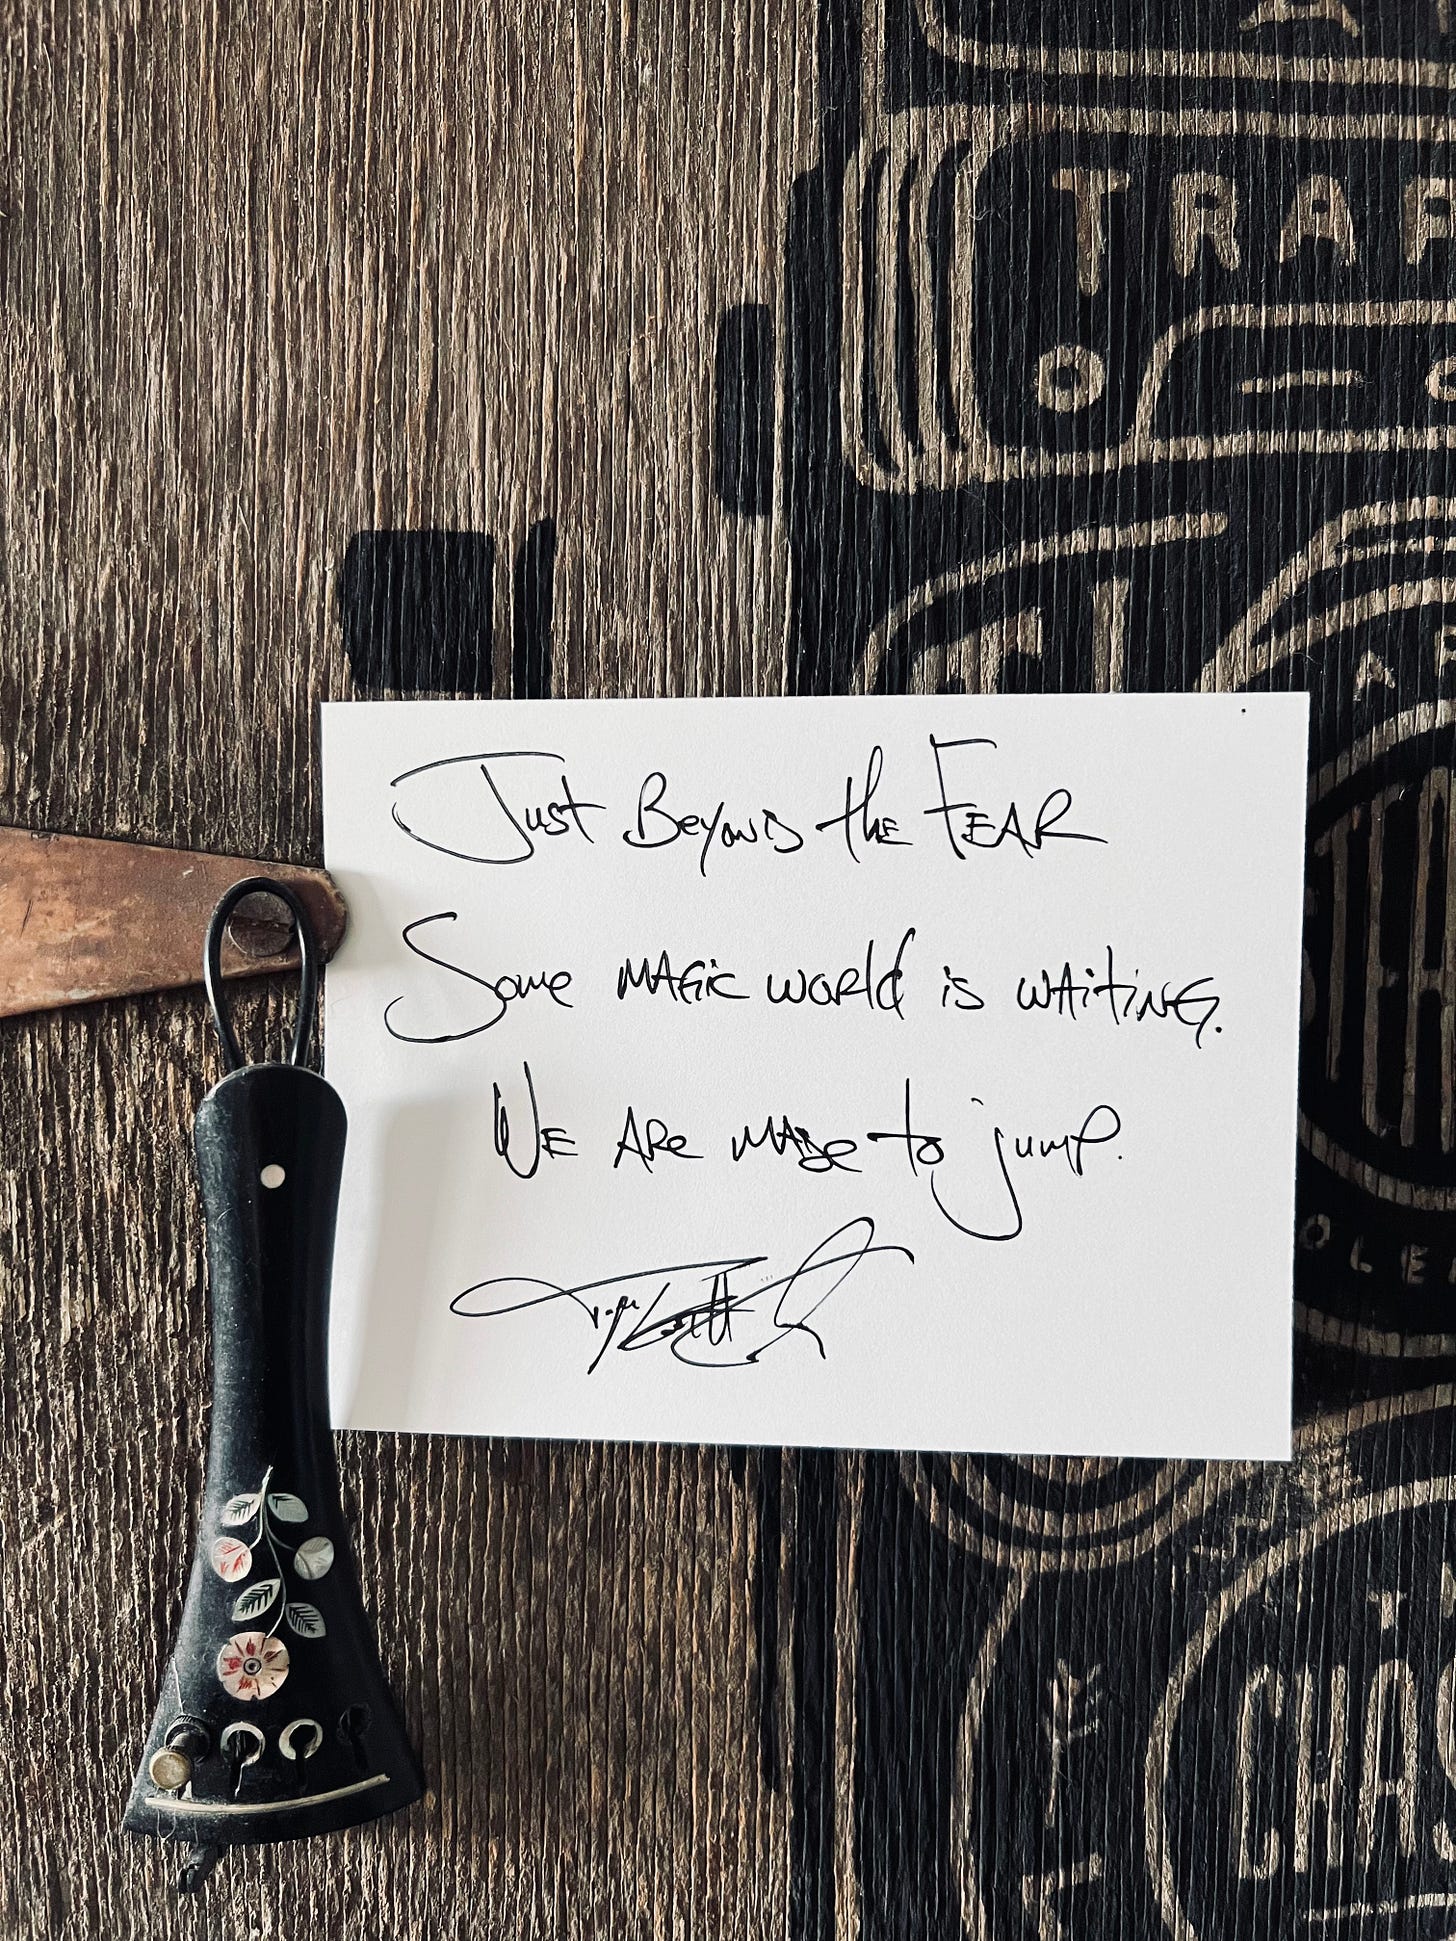 TRAF
Just Beyond the FEAR
Some MAGic world is waitiNG.
We Are made to jump.
OLEA
CHAS